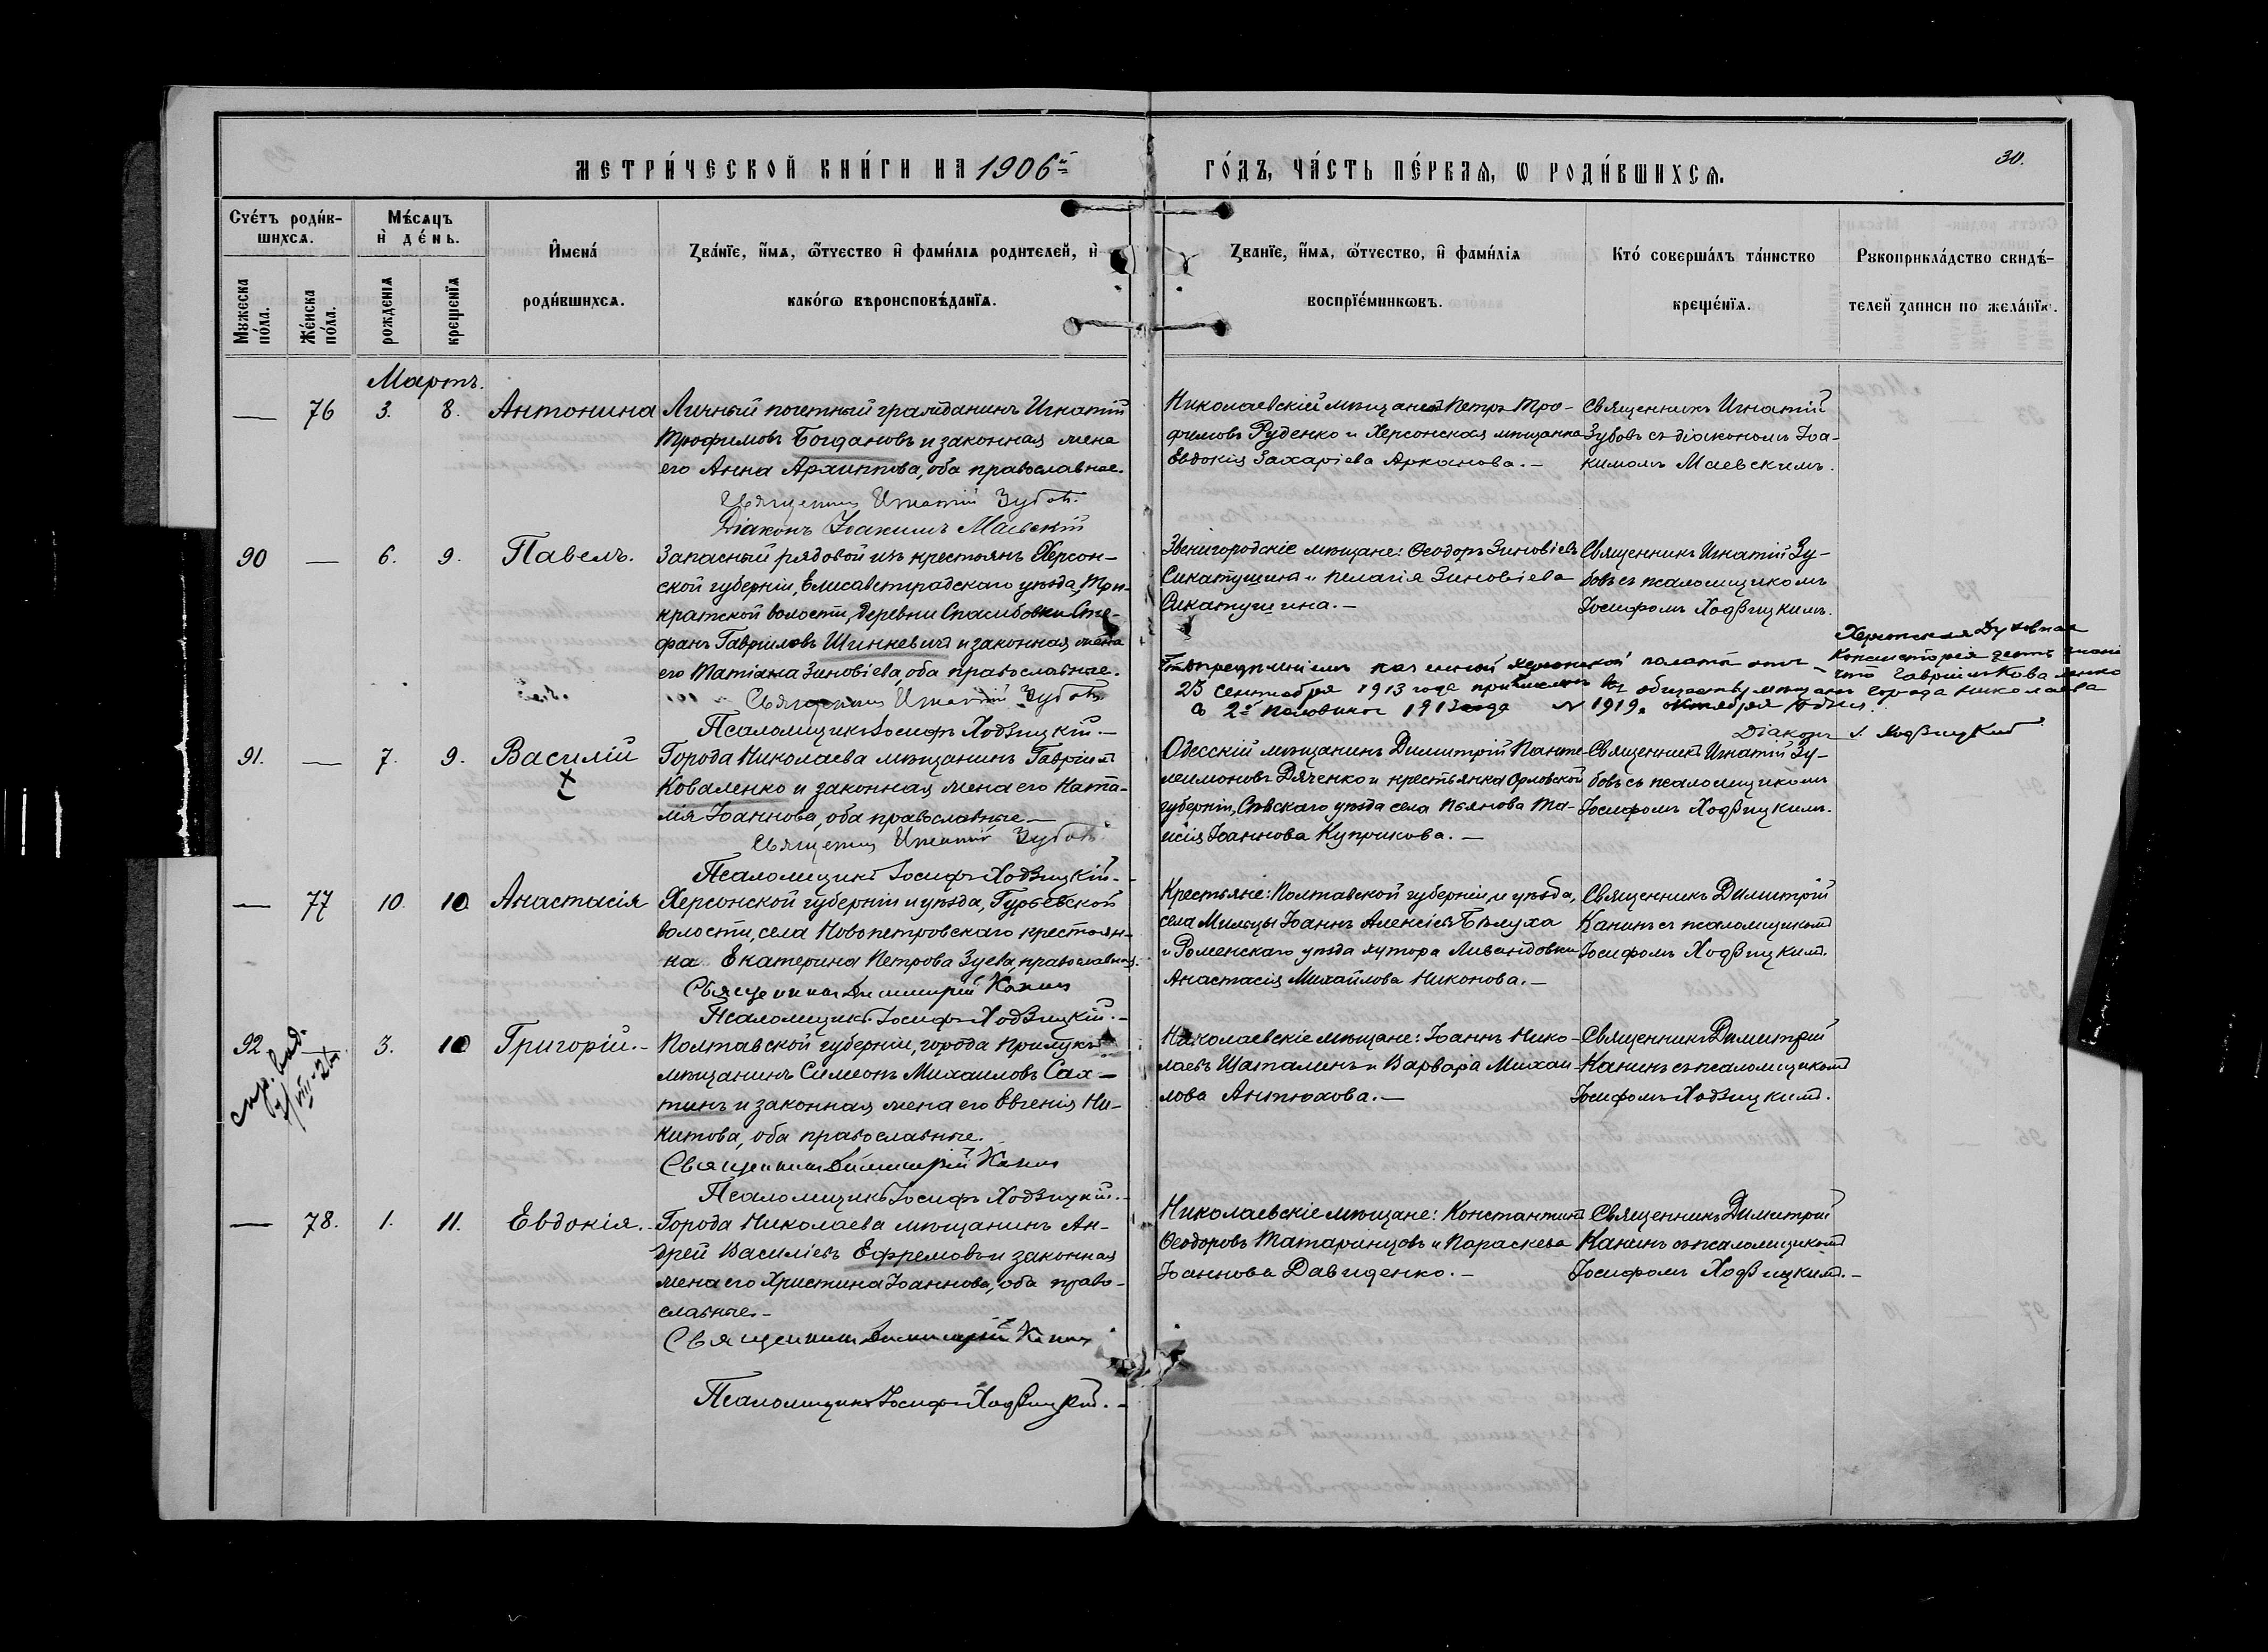 МЕТРИ́ЧЕСКОЙ КНИ́ГИ НА 1906й
ГО́ДЪ, ЧА́СТЬ ПЕ́РВАѦ, Ѡ РОДИ́ВШИХСѦ.
30.
Счéтъ роди́в-
шихсѧ.
Мужеска
по́ла.
Же́нска
по́ла.
Мѣ́сѧцъ
и҆ де́нь.
рожденїѧ
крещенїѧ
И҆мена́
роди́вшихсѧ.
Ꙁва́нїе, и҆́мѧ, ѻ҆́тчество и҆ фами́лїѧ родителей, и҆
како́гѡ вѣроисповѣ́данїѧ.
Ꙁванїе, и҆́мѧ, ѻ҆́тчество, и҆ фами́лїѧ
воспрїе́мниковъ.
Кто́ соверша́лъ та́инство
креще́нїѧ.
Рꙋкоприкла́дство свидѣ́-
телей ꙁаписи по жела́нїю.
Мартъ.
— 76 3. 8. Антонина
Личный почетный гражданинъ Игнатій
Трофимовъ Богдановъ и законная жена
его Анна Архиппова, оба православные.
Священник Игнатій Зубовъ.
Діаконъ Іоакимъ Маевскій
Николаевскій мѣщанинъ Петръ Тро-
фимовъ Руденко и Херсонская мѣщанка
Евдокія Захаріева Арканова.—
Священникъ Игнатій
Зубовъ съ діакономъ Іоа-
кимомъ Маевскимъ.
90 — 6. 9. Павелъ.
Запасный рядовой изъ крестьянъ Херсон-
ской губерніи, Елисаветградскаго уѣзда, Три-
кратской волости, деревни Спасибовки Сте-
фанъ Гавриловъ Шинкевичъ и законная жена
его Татіана Зиновіева, оба православные.
Священник Игнатій Зубовъ
Псаломщикъ Іосифъ Ходзицкій.—
Звенигородскіе мѣщане: Ѳеодоръ Зиновіевъ
Сикатушинъ и Пелагія Зиновіева
Сикатушина.—
Священникъ Игнатій Зу-
бовъ съ псаломщикомъ
Іосифомъ Ходзицкимъ.
Херсонская Духовная
Консисторія даетъ знать
что Гавріилъ Коваленко
казенной херсонской палаты отъ
25 сентября 1913 года причисленъ къ обществу мѣщанъ города Николаева
съ 2й половины 1913 года № 1919.
Діаконъ І. Ходзицкій
91. — 7. 9. Василій
х
Города Николаева мѣщанинъ Гавріилъ
Коваленко и законная жена его Ната-
лія Іоаннова, оба православные—
Священник Игнатій Зубовъ
Псаломщикъ Іосифъ Ходзицкій.—
Одесскій мѣщанинъ Димитрій Панте-
леимоновъ Дяченко и крестьянка Орловской
губерніи, Сѣвскаго уѣзда села Пьянова Та-
исія Іоаннова Куприкова.—
Священникъ Игнатій Зу-
бовъ съ псаломщикомъ
Іосифомъ Ходзицкимъ.
— 77 10. 10 Анастасія
Херсонской губерніи и уѣзда, Гурьевской
волости, села Новопетровскаго крестьян-
ка Екатерина Петрова Зуева, православная.
Священникъ Димитрій Канинъ
Псаломщикъ Іосифъ Ходзицкій.—
Крестьяне: Полтавской губерніи, и уѣзда,
села Мильцы Іоаннъ Алексіевъ Бѣлуха
и Роменскаго уѣзда хутора Ливандовки
Анастасія Михайлова Никонова.—
Священникъ Димитрій
Канинъ съ псаломщикомъ
Іосифомъ Ходзицкимъ.
92 — 3. 10 Григорій.—
Полтавской губерніи, города Прилукъ
мѣщанинъ Симеонъ Михаиловъ Сах-
тинъ и законная жена его Евгенія Ни-
китова, оба православные.
Священникъ Димитрій Канинъ
Псаломщикъ Іосифъ Ходзицкій.—
Николаевскіе мѣщане: Іоаннъ Нико-
лаевъ Шаталинъ и Варвара Михаи-
лова Антюхова.—
Священникъ Димитрій
Канинъ съ псаломщикомъ
Іосифомъ Ходзицкимъ.
— 78. 1. 11. Евдокія.
Города Николаева мѣщанинъ Ан-
дрей Василіевъ Ефремовъ и законная
жена его Христина Іоаннова, оба право-
славные.—
Священникъ Димитрій Канинъ
Псаломщикъ Іосифъ Ходзицкій.—
Николаевскіе мѣщане: Константинъ
Ѳеодоровъ Татаринцевъ и Параскева
Іоаннова Давиденко.—
Священникъ Димитрій
Канинъ съ псаломщикомъ
Іосифомъ Ходзицкимъ.—